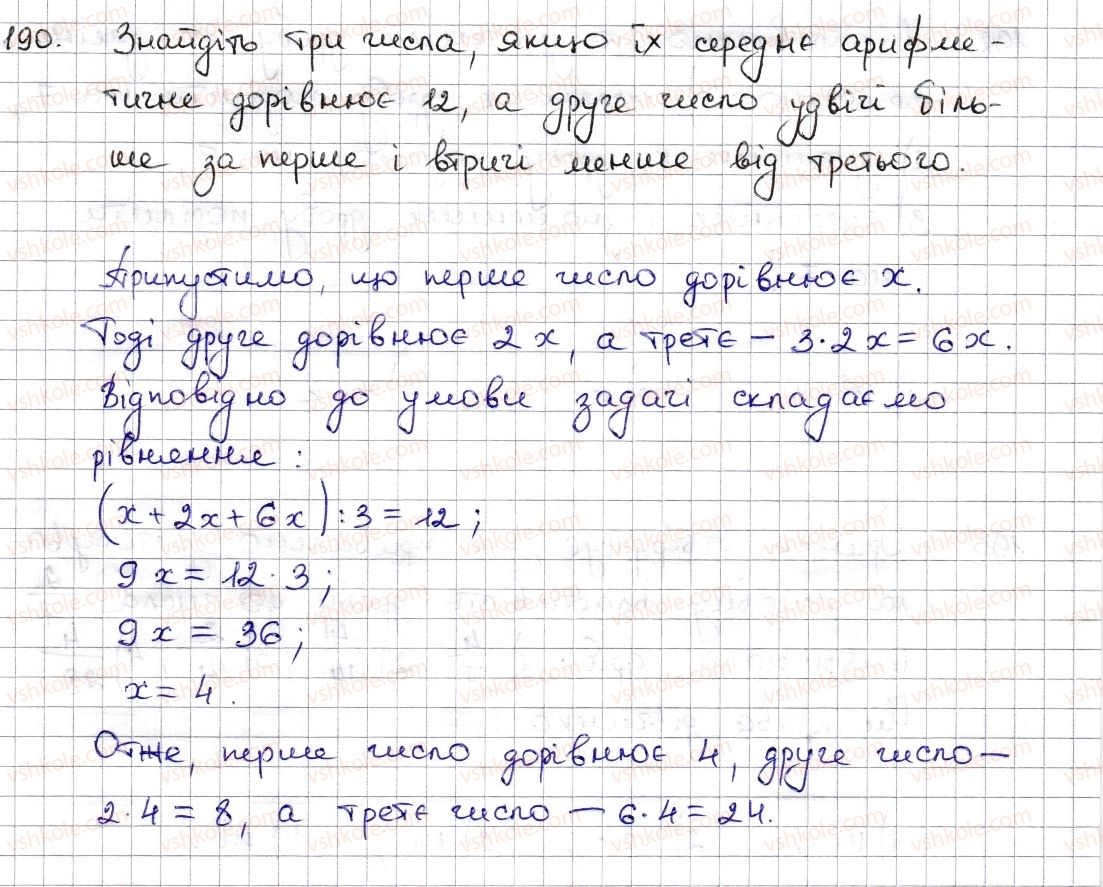 190. Знайдіть три числа, якщо їх середнє арифме-
тичне дорівнює 12, а друге число удвічі біль-
ше за перше і втричі менше від третього.
Припустимо, що перше число дорівнює x.
Тоді друге дорівнює 2x, а третє - 3·2x = 6x.
Відповідно до умови задачі складаємо
рівняння:
(x + 2x + 6x) : 3 = 12;
9x = 12·3;
9x = 36;
x = 4.
Отже, перше число дорівнює 4, друге число —
2·4 = 8, а третє число — 6·4 = 24.